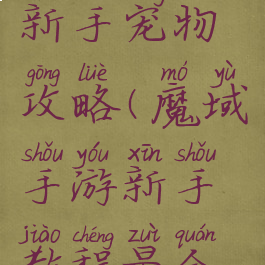 新手宠物
gōng lüè mó yù
攻略(魔域
shǒu yóu xīn shǒu
手游新手
jiào chéng zuì quán
教程最全